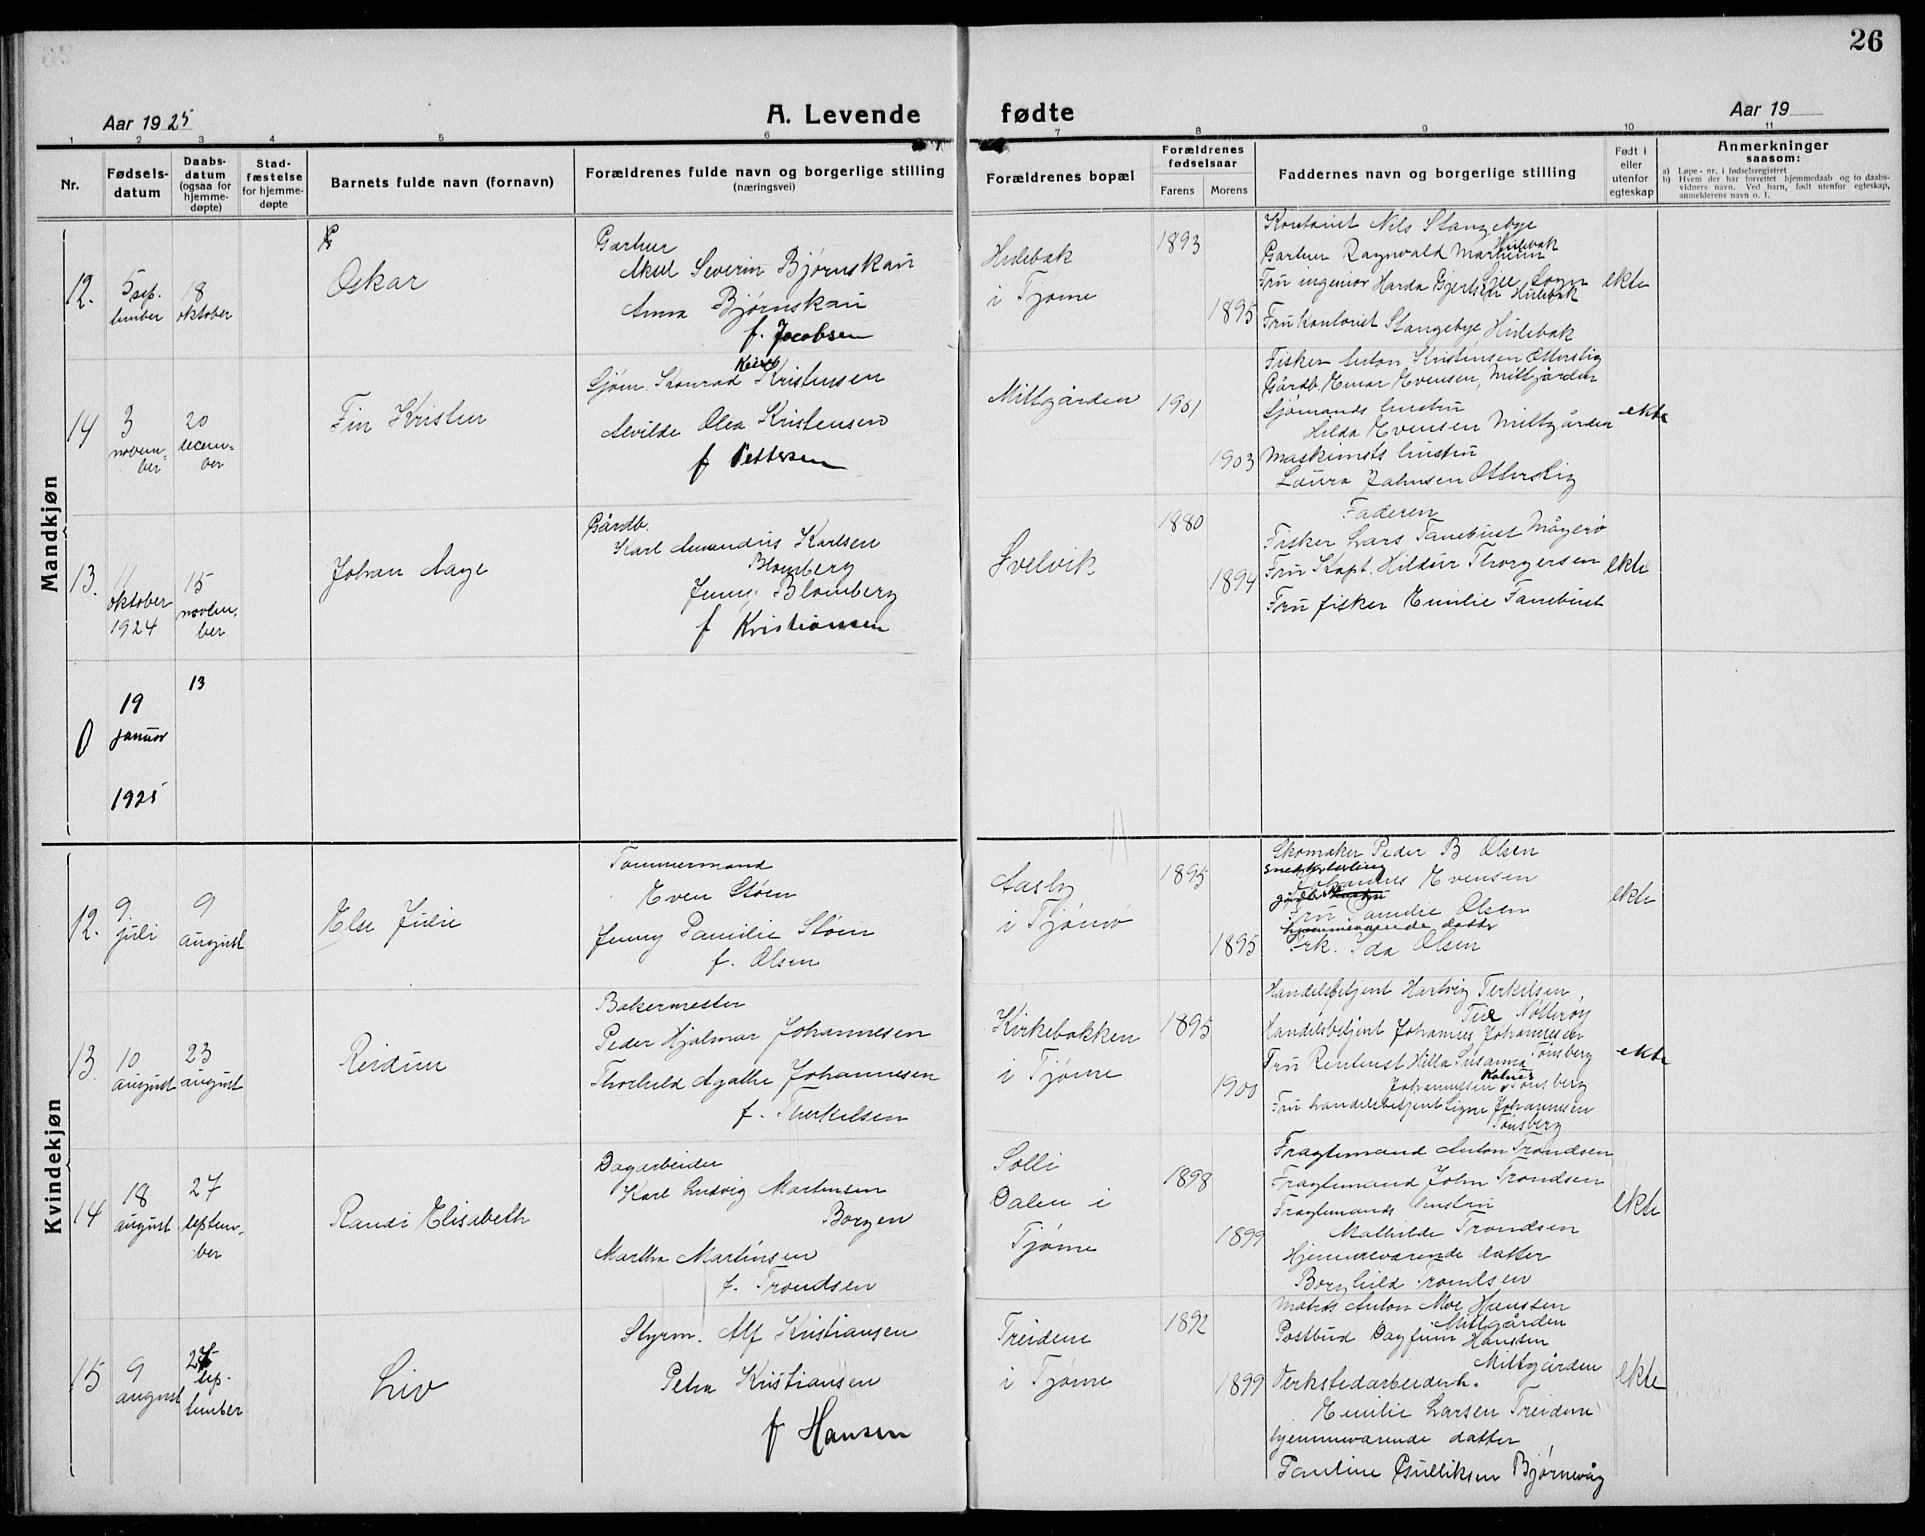 26
Aar 1925
A. Levende
fødte
Aar 19
1 2 3 4 5 6 7 8 9 10 11
Nr.
Fødsels-
datum
Daabs-
datum
(ogsaa for
hjemme-
døpte)
Stad-
fæstelse
for hjemme-
døpte
Barnets fulde navn (fornavn)
Forældrenes fulde navn og borgerlige stilling
(næringsvei)
Forældrenes bopæl
Forældrenes
fødselsaar
Farens
Morens
Faddernes navn og borgerlige stilling
Født i
eller
utenfor
egteskap
Anmerkninger
saasom:
a) Løpe-nr. i fødselsregistret
b) Hvem der har forrettet hjemmedaab og to daabs-
vidners navn. Ved barn, født utenfor egteskap,
anmelderens navn o. l.
Mandkjøn
12.
5 sep.
tember
18
oktober
Oskar
Gartner
Aksel Severin Bjørnskau
Anna Bjørnskau
f. Jacobsen
Hulebak
i Tjøme
1893
1895
Kontorist Nils Stangebye
Hulebak
Gartner Ragnvald
Fru ingeniør
Hulebak
Fru kontorist Stangebye Hulebak
ekte
14
3
novem-
ber
20
decem-
ber
Fin Kristen
Sjøm. Konrad Kristensen
Alvilde Olea Kristensen
f Pettersen
Mittgården
1901
1903
Fisker Anton Kristensen Otterstig
Gårdb. Einar Evensen, Mittgården
Sjømands hustru
Hilda Evensen Mittgården
Maskinists hustru
Laura Johnsen Otterstig
ekte
13.
11
oktober
1924
15
novem-
ber
Johan Aage
Gårdb.
Karl Amandus Karlsen
Blomberg
Jenny Blomberg
f Kristiansen
Svelvik
1880
1894
Faderen
Fisker Lars Tanebust Mågerø
Fru Kapt. Hildur Thorgersen
Fru fisker Emilie Tanebust
ekte
0
19
januar
1925
13
Kvindekjøn
12.
9
juli
9
august
Else Julie
Tømmermand
Even Støen
Jenny Pamilie Støen
f. Olsen
Aasby
i Tjømø
1895
1895
Skomaker Peder B Olsen
Johannes Evensen
Fru Pamilie Olsen
hjemmeværende datter
Frk. Ida Olsen
ekte
13.
10
august
23
august
Reidun
Bakermester
Peder Hjalmar Johannesen
Thorhild Agathe Johannesen
f. Therkelsen
Kirkebakken
i Tjøme
1895
1900
Handelsbetjent Hartvig Terkelsen,
Nøtterøy
Handelsbetjent Johannes Johannesen
Tønsberg
Fru Rentenist Hilla Susanna
Johannessen Tønsberg
Fru handelsbetjent Signe Johannesen
Tønsberg
ekte
14
18
august
27
septem-
ber
Randi Elisabeth
Dagarbeider
Karl Ludvig Martinsen
Borgen
Martha Martinsen
f. Trondsen
Solli
Dalen i
Tjøme
1898
1899
Fragtemand Anton Trondsen
Fragtemand John Trondsen
Fragtemands hustru
Mathilde Trondsen
Hjemmeværende datter
Borghild Trondsen
ekte
15
9
august
27
sep-
tember
Liv
Styrm. Alf Kristiansen
Petra Kristiansen
f Hansen
Treidene
i Tjøme
1892
1899
Matros Anton Moe Hansen
Mittgården
Postbud Dagfinn Hansen
Mittgården
Verkstedarbeiderh.
Emilie Larsen Treidene
hjemmeværende datter
Pauline Gulliksen Bjørnevåg
ekte